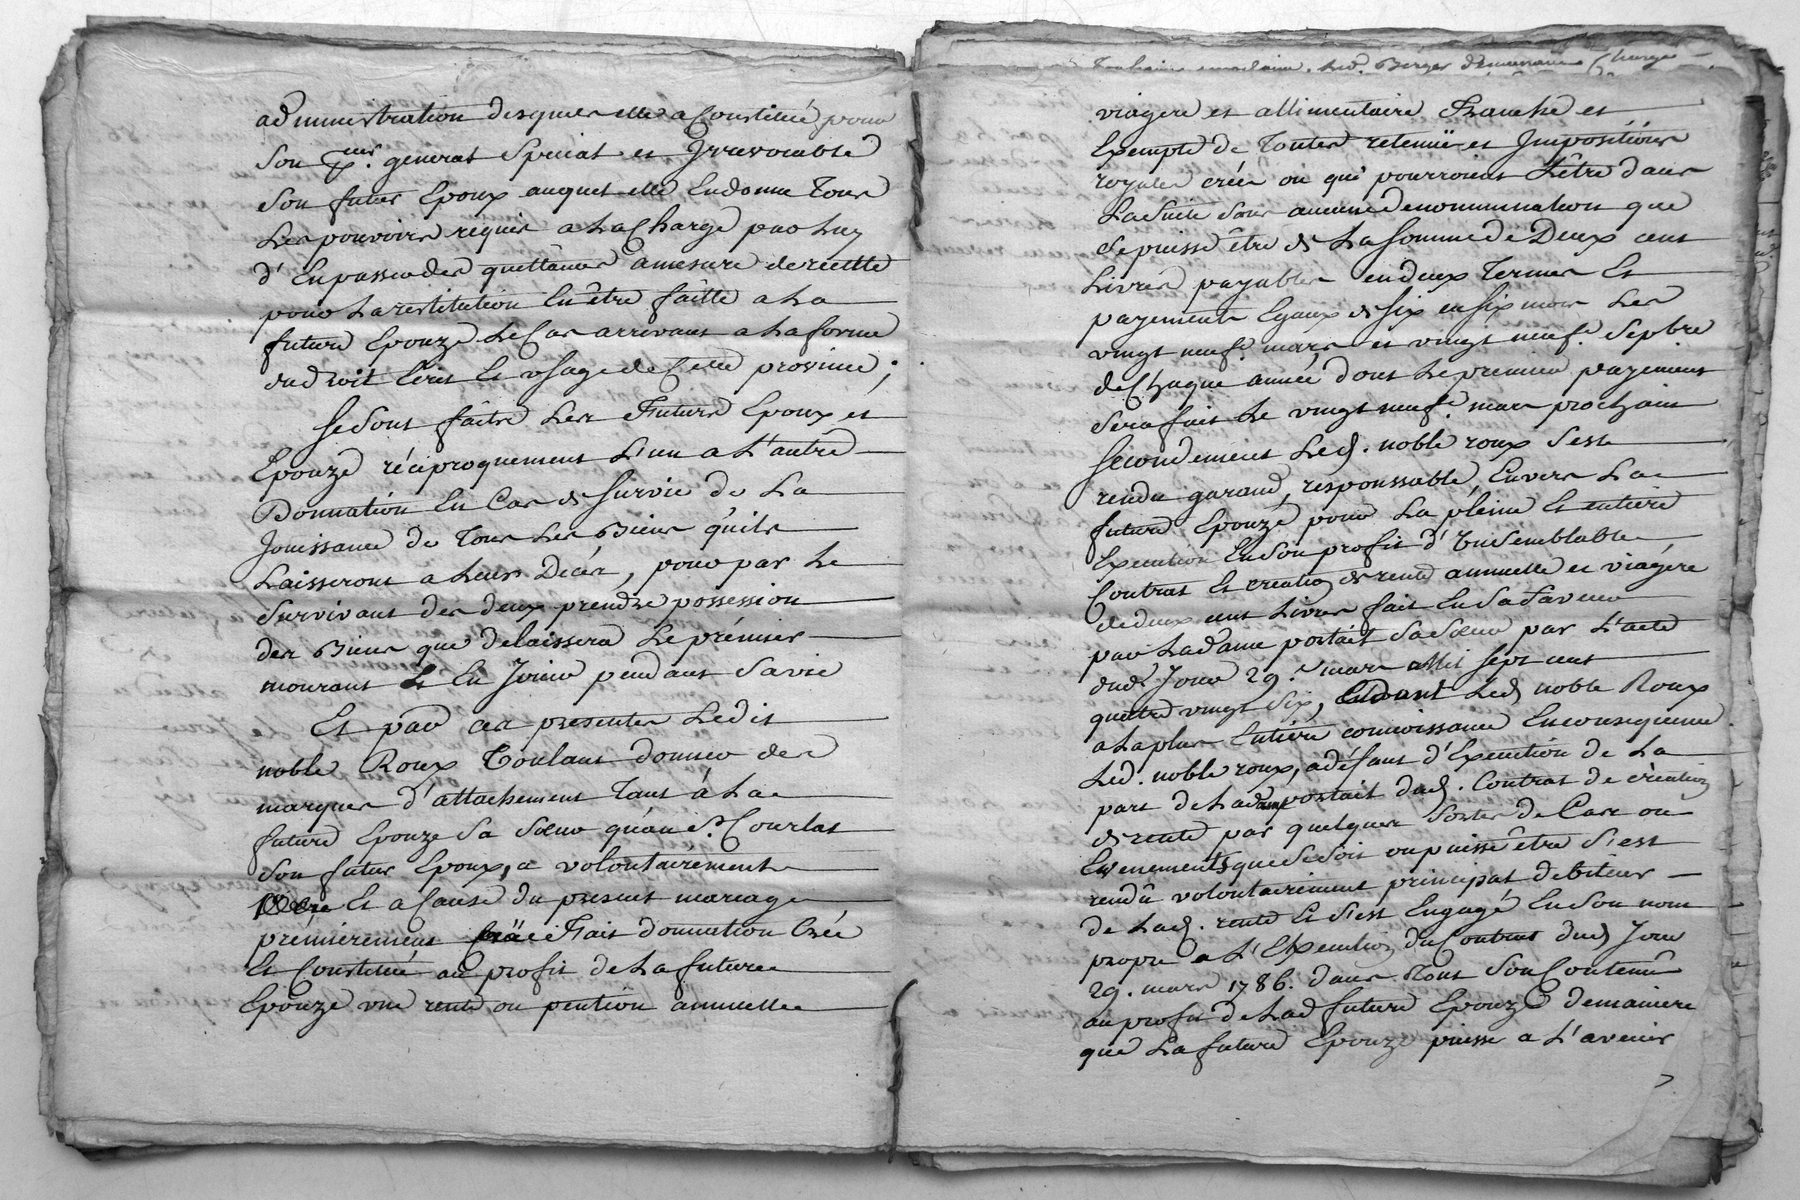 administration desquels elle a Constitué pour
Son p.eur general Special et Irrevocable
Son futur Epoux auquel elle En donne Tous
Les pouvoirs requis a La Charge par Luy
d'En passer des quittances a mesure de recette
pour La restitution En être faitte a La
future Epouze Le Cas arrivant a La forme
du droit Ecrit Et Usage de Cette province ;
Se sont faits Les Futurs Epoux et
Epouze réciproquement L'un a L'autre
Donnation En Cas de Survie de La
Jouissance de Tous Les Biens qu'ils
Laisseront a Leurs Décès, pour par Le
Survivant des deux prendre possession
des Biens que delaissera Le prémier
mourant Et En Jouir pendant Sa vie
Et par ces presentes Ledit
noble Roux Voulant donner des
marques d'attachement Tant á La
future Epouze Sa Sœur qu'au S.r Courlat
Son futur Epoux, a volontairement
Et a Cause du present mariage
prémierement Fait donnation Créé
Et Constitué au profit de La future
Epouze une rente ou pention annuelle
Berger demeurant Chargé
viagere et allimentaire Franche et
Exempte de Toutes retenües et Impositions
royales créés ou qui pourroient L'être dans
La Suite Sous aucune denommination que
Ce puisse être de La Somme de Deux cent
Livres payables en deux Termes Et
payements Egaux de Six en Six mois Les
vingt neuf.e mars et vingt neuf.e Sepbre
de Chaque année dont Le premier payement
Sera fait Le vingt neuf.e mars prochain
Secondement Led. noble roux S'est
rendu garand, responssable, Envers La
future Epouze pour La pleine Et entiere
Execution En Son profit d'Un Semblable
Contrat Et création de rente annuelle et viagére
de deux cent Livres fait En Sa faveur
par La dame portait Sa Sœur par L'acte
dud. Jour 29.e mars Mil Sept cent
quatre vingt Six, Led noble Roux
a La plus Entiere connoissance En consequence
Led. noble roux, a défaut d'Execution de La
part de Lad. dame portait dud. Contrat de création
de rente par quelques Sortes de Cas ou
Evenements que Ce Soit ou puisse être S'est
rendû volontairement principal debiteur
de Lad. rente Et S'est Engagé En Son nom
propre a L'Execution du Contrat dud Jour
29. mars 1786. dans Tout Son Contenû
au profit de Lad future Epouze demaniere
que La future Epouze puisse a L'avenir